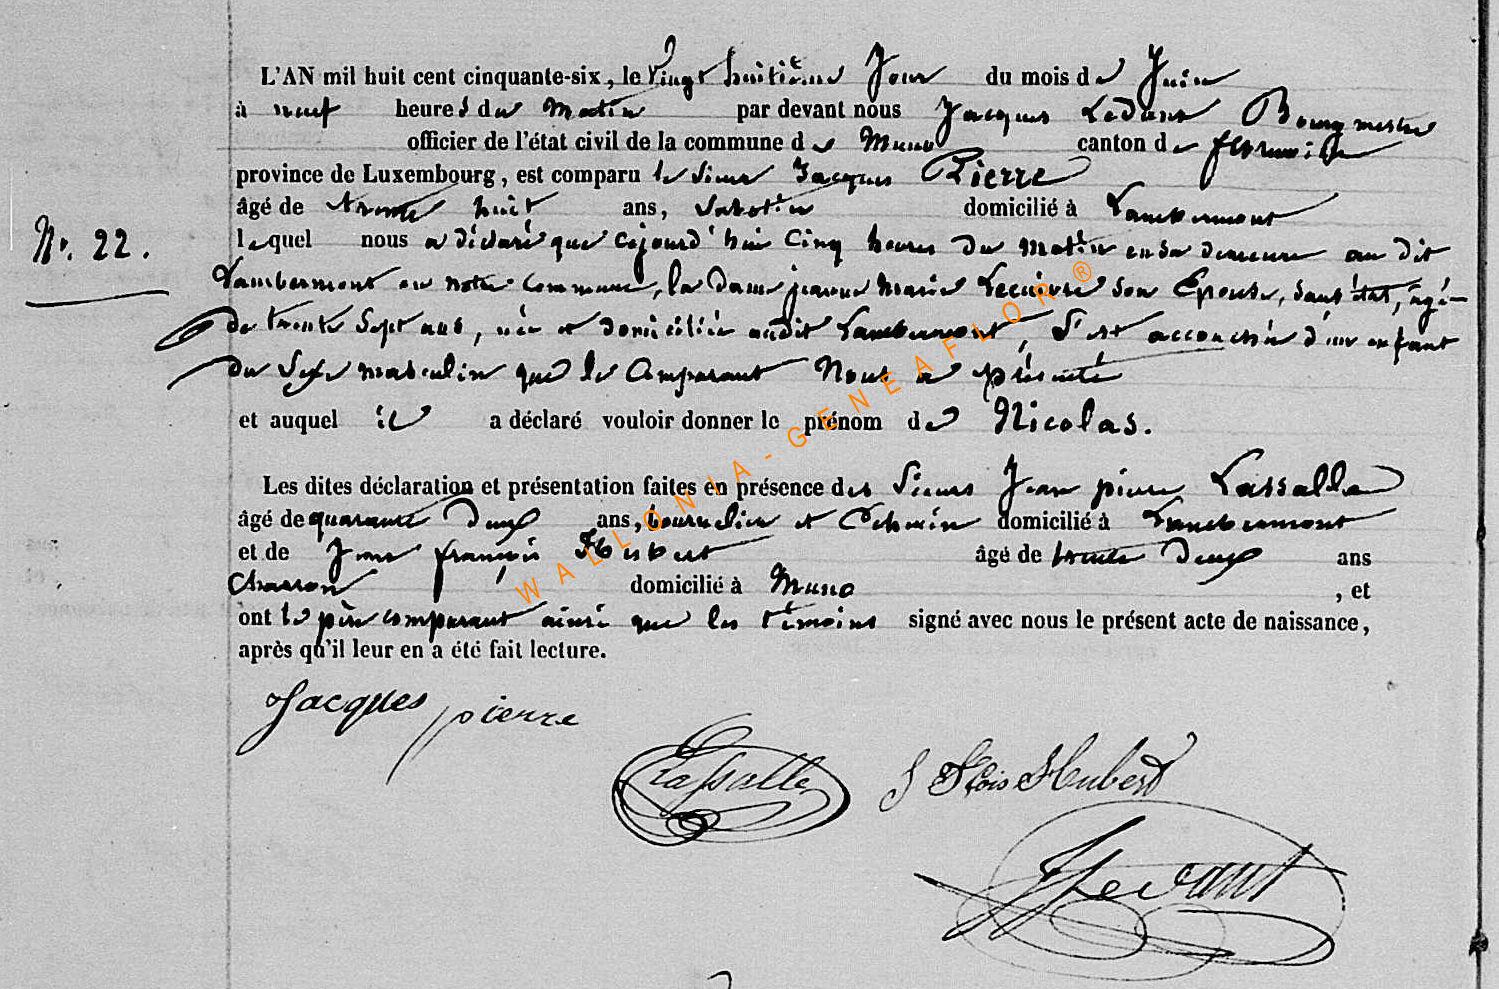 L'AN mil huit cent cinquante-six, le Vingt huitième Jour du mois de Juin
à neuf heures du Matin par devant nous Jacques Ledant Bourgmestre
officier de l'état civil de la commune de Muno canton de florenville
province de Luxembourg, est comparu le Sieur Jacques Pierre
âgé de trente huit ans, Sabotier domicilié à Lambermont
Nr. 22.
lequel nous a déclaré que cejourd'hui Cinq heures du matin en sa demeure au dit
Lambermont en notre commune, la Dame jeanne Marie Lecuivre son Epouse, sans état, âgé-
de trente Sept ans, née et domiciliée audit Lambermont, S'est accouchée d'un enfant
du Sexe masculin que le Comparant Nous a présenté
et auquel il a déclaré vouloir donner le prénom de Nicolas.
Les dites déclaration et présentation faites en présence des Sieurs Jean pierre Lassalle
âgé de quarante Deux ans, domicilié à Lambermont
et de Jean françois Hubert âgé de trente Deux ans
Charron domicilié à Muno , et
ont le père comparant ainsi que les témoins signé avec nous le présent acte de naissance,
après qu'il leur en a été fait lecture.
Jacques pierre
Lassalle
J Fçois Hubert
J Ledant
WALLONIA-GENEAFLOR®